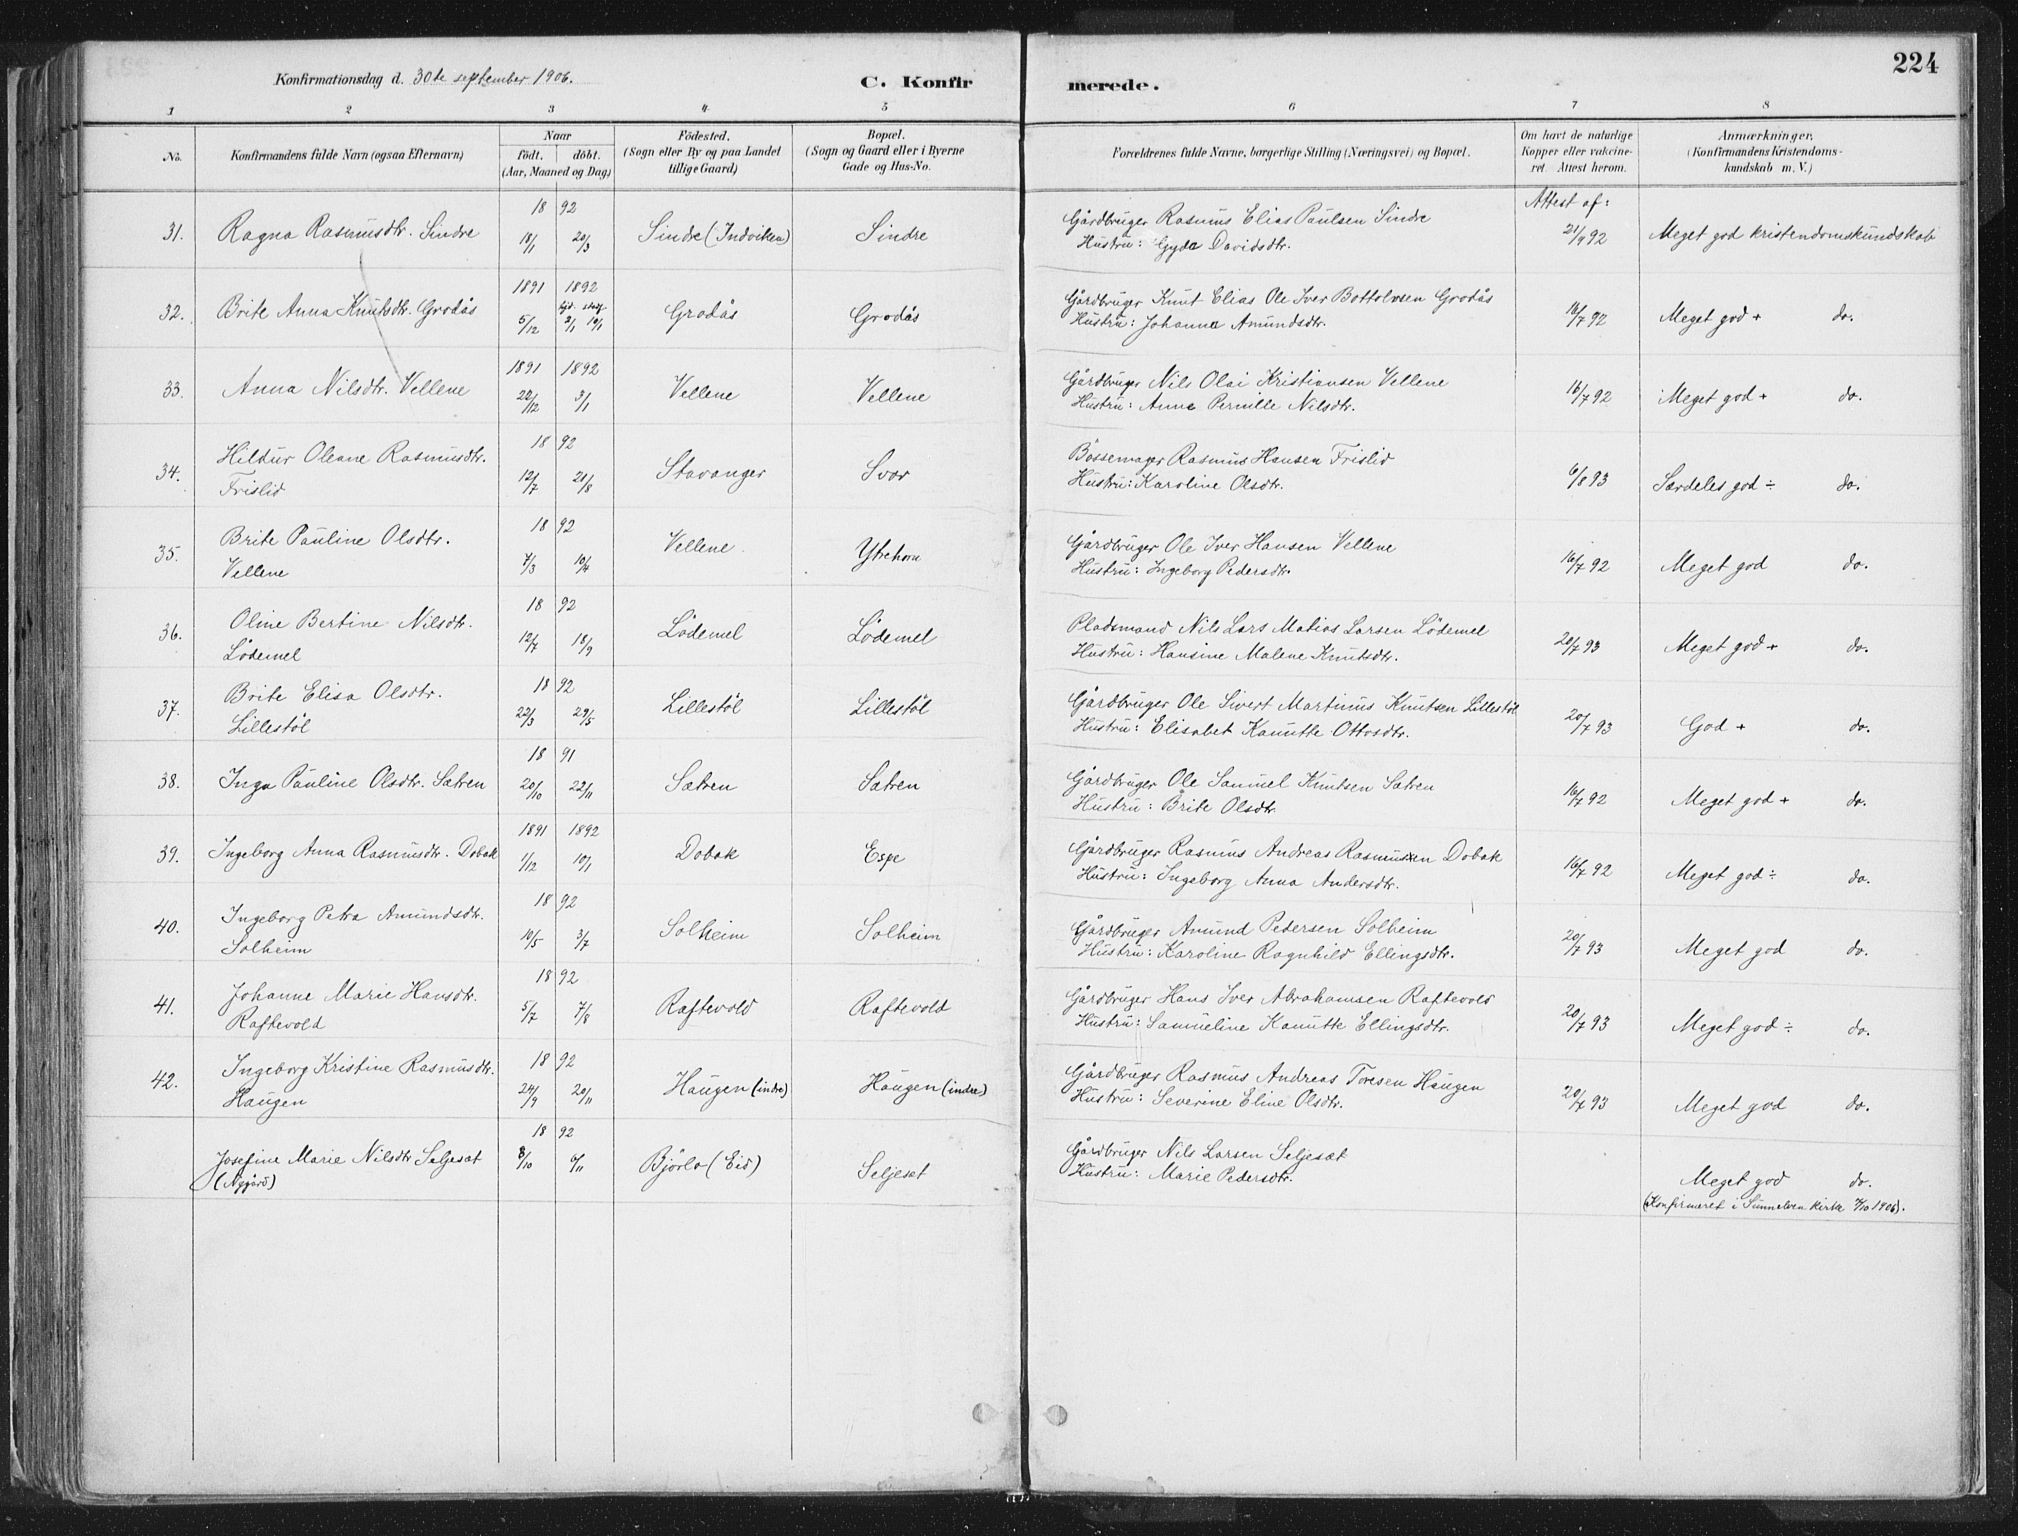 224
Konfirmationsdag d. 30te september 1906.
C. Konfirmerede.
1 2 3 4 5 6 7 8
No.
Konfirmandens fulde Navn (ogsaa Efternavn)
Naar
födt. döbt.
(Aar, Maaned og Dag)
Födested.
(Sogn eller By og paa Landet
tillige Gaard)
Bopæl.
(Sogn og Gaard eller i Byerne
Gade og Hus-No.
Forældrenes fulde Navne, borgerlige Stilling (Næringsvei) og Bopæl.
Om havt de naturlige
Kopper eller vakcine-
ret. Attest herom.
Anmærkninger.
(Konfirmandens Kristendoms-
kundskab m. V.)
Attest af:
18 92
31. Ragna Rasmusdtr. Sindre 18/1 20/3 Sindre (Indviken) Sindre
Gårdbruger Rasmus Elias Paulsen Sindre
Hustru: Gyda Davidsdtr.
21/9 92 Meget god kristendomskundskab
1891 1892
32. Brite Anna Knutsdtr. Grodås 5/12 hjd. 2/1 stadf. 19/1 Grodås Grodås
Gårdbruger Knut Elias Ole Iver Bottolvsen Grodås
Hustru: Johanna Amundsdtr.
16/7 92 Meget god + do.
1891 1892
33. Anna Nilsdtr. Vellene 22/12 3/1 Vellene Vellene
Gårdbruger Nils Olai Kristiansen Vellene
Hustru: Anna Pernille Nilsdtr.
16/7 92 Meget god + do.
18 92
34. Hildur Oleane Rasmusdtr.
Frislid 12/7 21/8 Stavanger Svor
Bössemager Rasmus Hansen Frislid
Hustru: Karoline Olsdtr.
6/8 93 Særdeles god ÷ do.
18 92
35. Brite Pauline Olsdtr.
Vellene 7/3 10/4 Vellene Ytrehorn
Gårdbruger Ole Iver Hansen Vellene
Hustru: Ingeborg Pedersdtr.
16/7 92 Meget god do.
18 92
36. Oline Bertine Nilsdtr.
Lödemel 12/7 18/9 Lödemel Lödemel
Pladsmand Nils Lars Matias Larsen Lödemel
Hustru: Hansine Malene Knutsdtr.
20/7 93 Meget god + do.
18 92
37. Brite Elisa Olsdtr.
Lillestöl 22/3 29/5 Lillestöl Lillestöl
Gårdbruger Ole Sivert Martinus Knutsen Lillestöl
Hustru: Elisabet Kanutte Ottosdtr.
20/7 93 God + do.
18 91
38. Inga Pauline Olsdtr. Sætren 20/10 22/11 Sætren Sætren
Gårdbruger Ole Samuel Knutsen Sætren
Hustru: Brite Olsdtr.
16/7 92 Meget god + do.
1891 1892
39. Ingeborg Anna Rasmusdtr. Dobak 1/12 10/1 Dobak Espe
Gårdbruger Rasmus Andreas Rasmussen Dobak
Hustru: Ingeborg Anna Andersdtr.
16/7 92 Meget god ÷ do.
18 92
40. Ingeborg Petra Amundsdtr.
Solheim 10/5 3/7 Solheim Solheim
Gårdbruger Amund Pedersen Solheim
Hustru: Karoline Ragnhild Ellingsdtr.
20/7 93 Meget god do.
18 92
41. Johanne Marie Hansdtr.
Raftevold 5/7 7/8 Raftevold Raftevold
Gårdbruger Hans Iver Abrahamsen Raftevold
Hustru: Samueline Kanutte Ellingsdtr.
20/7 93 Meget god ÷ do.
18 92
42. Ingeborg Kristine Rasmusdtr.
Haugen 24/9 20/11 Haugen (indre) Haugen (indre)
Gårdbruger Rasmus Andreas Toresen Haugen
Hustru: Severine Eline Olsdtr.
20/7 93 Meget god do.
18 92
Josefine Marie Nilsdtr. Seljesæt
(Nygård) 8/10 6/11 Bjørlo (Eid) Seljeset
Gårdbruger Nils Larsen Seljesæt
Hustru: Marie Pedersdtr.
Meget god do.
(Konfirmeret i Sunnelven kirke 7/10 1906).